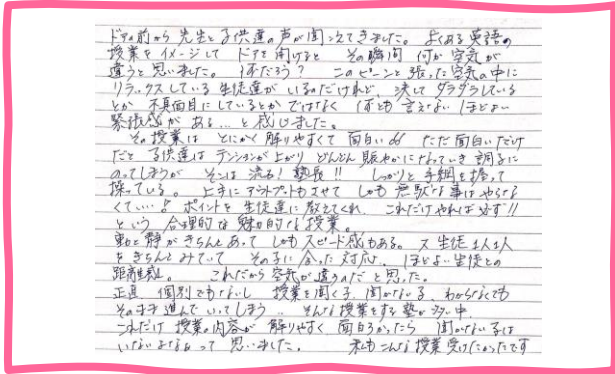 ドアの前から先生と子供達の声が聞こえてきました。よくある英語の
授業をイメージしてドアを開けると その瞬間 何か空気が
違うと思いました。何だろう？ このピーンと張った空気の中に
リラックスしている生徒達がいるのだけれど、決してダラダラしている
とか 不真面目にしているとかではなく 何とも言えない ほどよい
緊張感がある…と感じました。
その授業は とにかく解りやすくて面白い ただ面白いだけ
だと 子供達はテンションが上がり どんどん賑やかになっていき調子に
のってしまうが そこは流石!塾長!! しっかりと手綱を握って
操っている。上手にアウトプットもさせて しかも無駄な事はやらな
くていい! ポイントを生徒達に教えてくれ これだけやれば必ず!!
という 合理的な魅力的な授業。
動と静がきちんとあって しかもスピード感もある。又生徒1人1人
をきちんとみていて その子に合った対応、ほどよい生徒との
距離感。 これだから空気が違うのだと思った。
正直 個別でもないし 授業を聞く子、聞かない子、わからなくても
そのまま進んでいってしまう… そんな授業をする塾が多い中
これだけ授業の内容が解りやすく面白かったら 聞かない子は
いないよなぁって思いました。 私もこんな授業受けたかったです